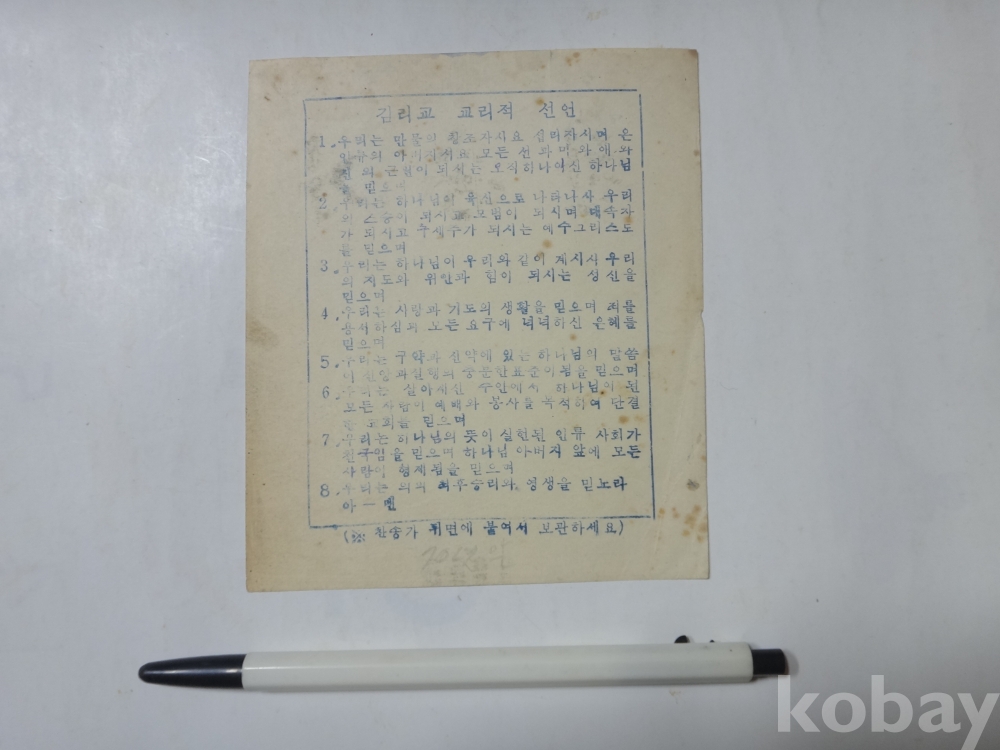 감리교 교리적 선언
1. 우리는 만물의 창조자시요 섭리자시며 온
인류의 아버지시요 모든 선과 미와 애와
진의 근원이 되시는 오직하나이신 하나님
을 믿으며
2. 우리는 하나님이 육신으로 나타나사 우리
의 스승이 되시고 모범이 되시며 대속자
가 되시고 구세주가 되시는 예수그리스도
를 믿으며
3. 우리는 하나님이 우리와 같이 계시사 우리
의 지도와 위안과 힘이 되시는 성신을
믿으며
4. 우리는 사랑과 기도의 생활을 믿으며 죄를
용서하심과 모든 요구에 넉넉하신 은혜를
믿으며
5. 우리는 구약과 신약에 있는 하나님의 말씀
이 신앙과실행의 충분한표준이됨을 믿으며
6. 우리는 살아계신 주안에서 하나님이 된
모든 사람이 예배와 봉사를 목적하여 단결
한 교회를 믿으며
7. 우리는 하나님의 뜻이 실현된 인류 사회가
천국임을 믿으며 하나님 아버지 앞에 모든
사람이 형제됨을 믿으며
8. 우리는 의의 최후승리와 영생을 믿노라
아ー멘
(※ 찬송가 뒤면에 붙여서 보관하세요)
kobay